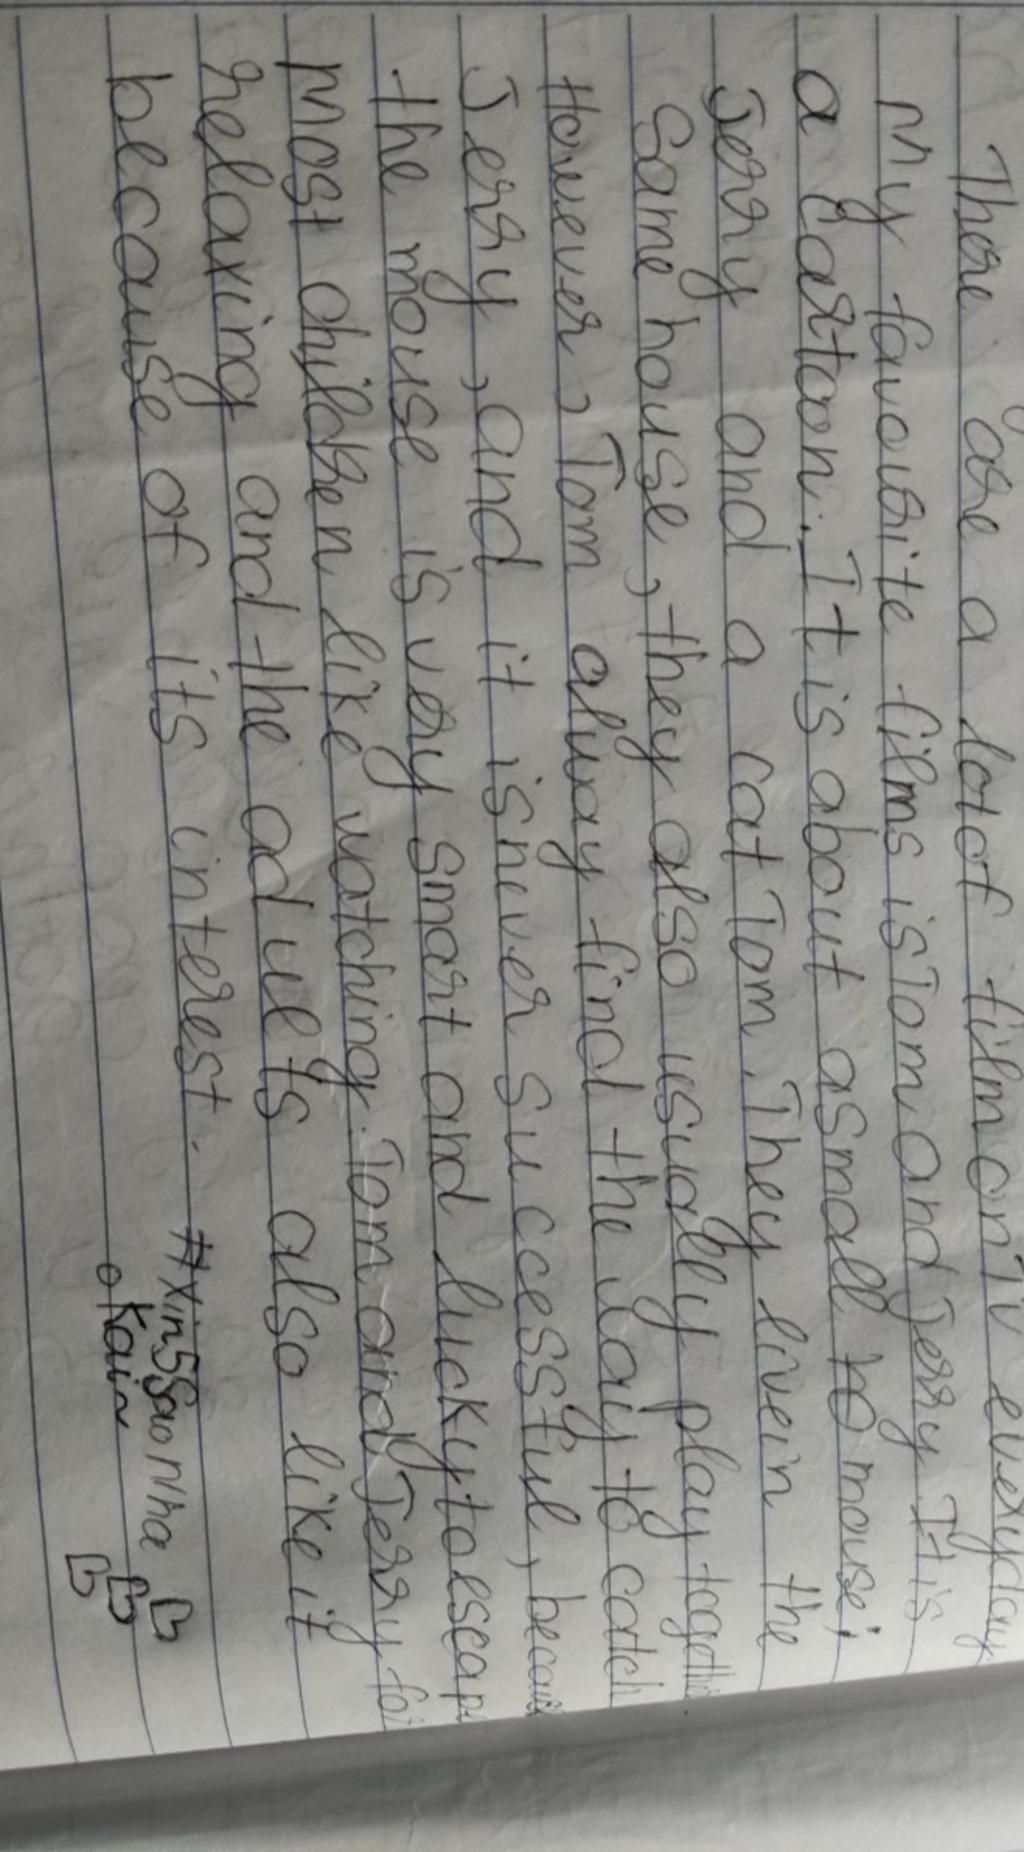 There are a lot of film on TV everyday
My favourite films is Tom and Jerry. It is
a cartoon. It is about a small mouse;
Jerry and a cat Tom. They live in the
same house, they also usually play together
However, Tom alway find the way to catch
Jerry, and it is never successful, becaus
the mouse is very smart and lucky to escap
Most children like watching Tom and Jerry for
relaxing and the adults also like it
because of its interest.
#Xin5Saonha
Kain